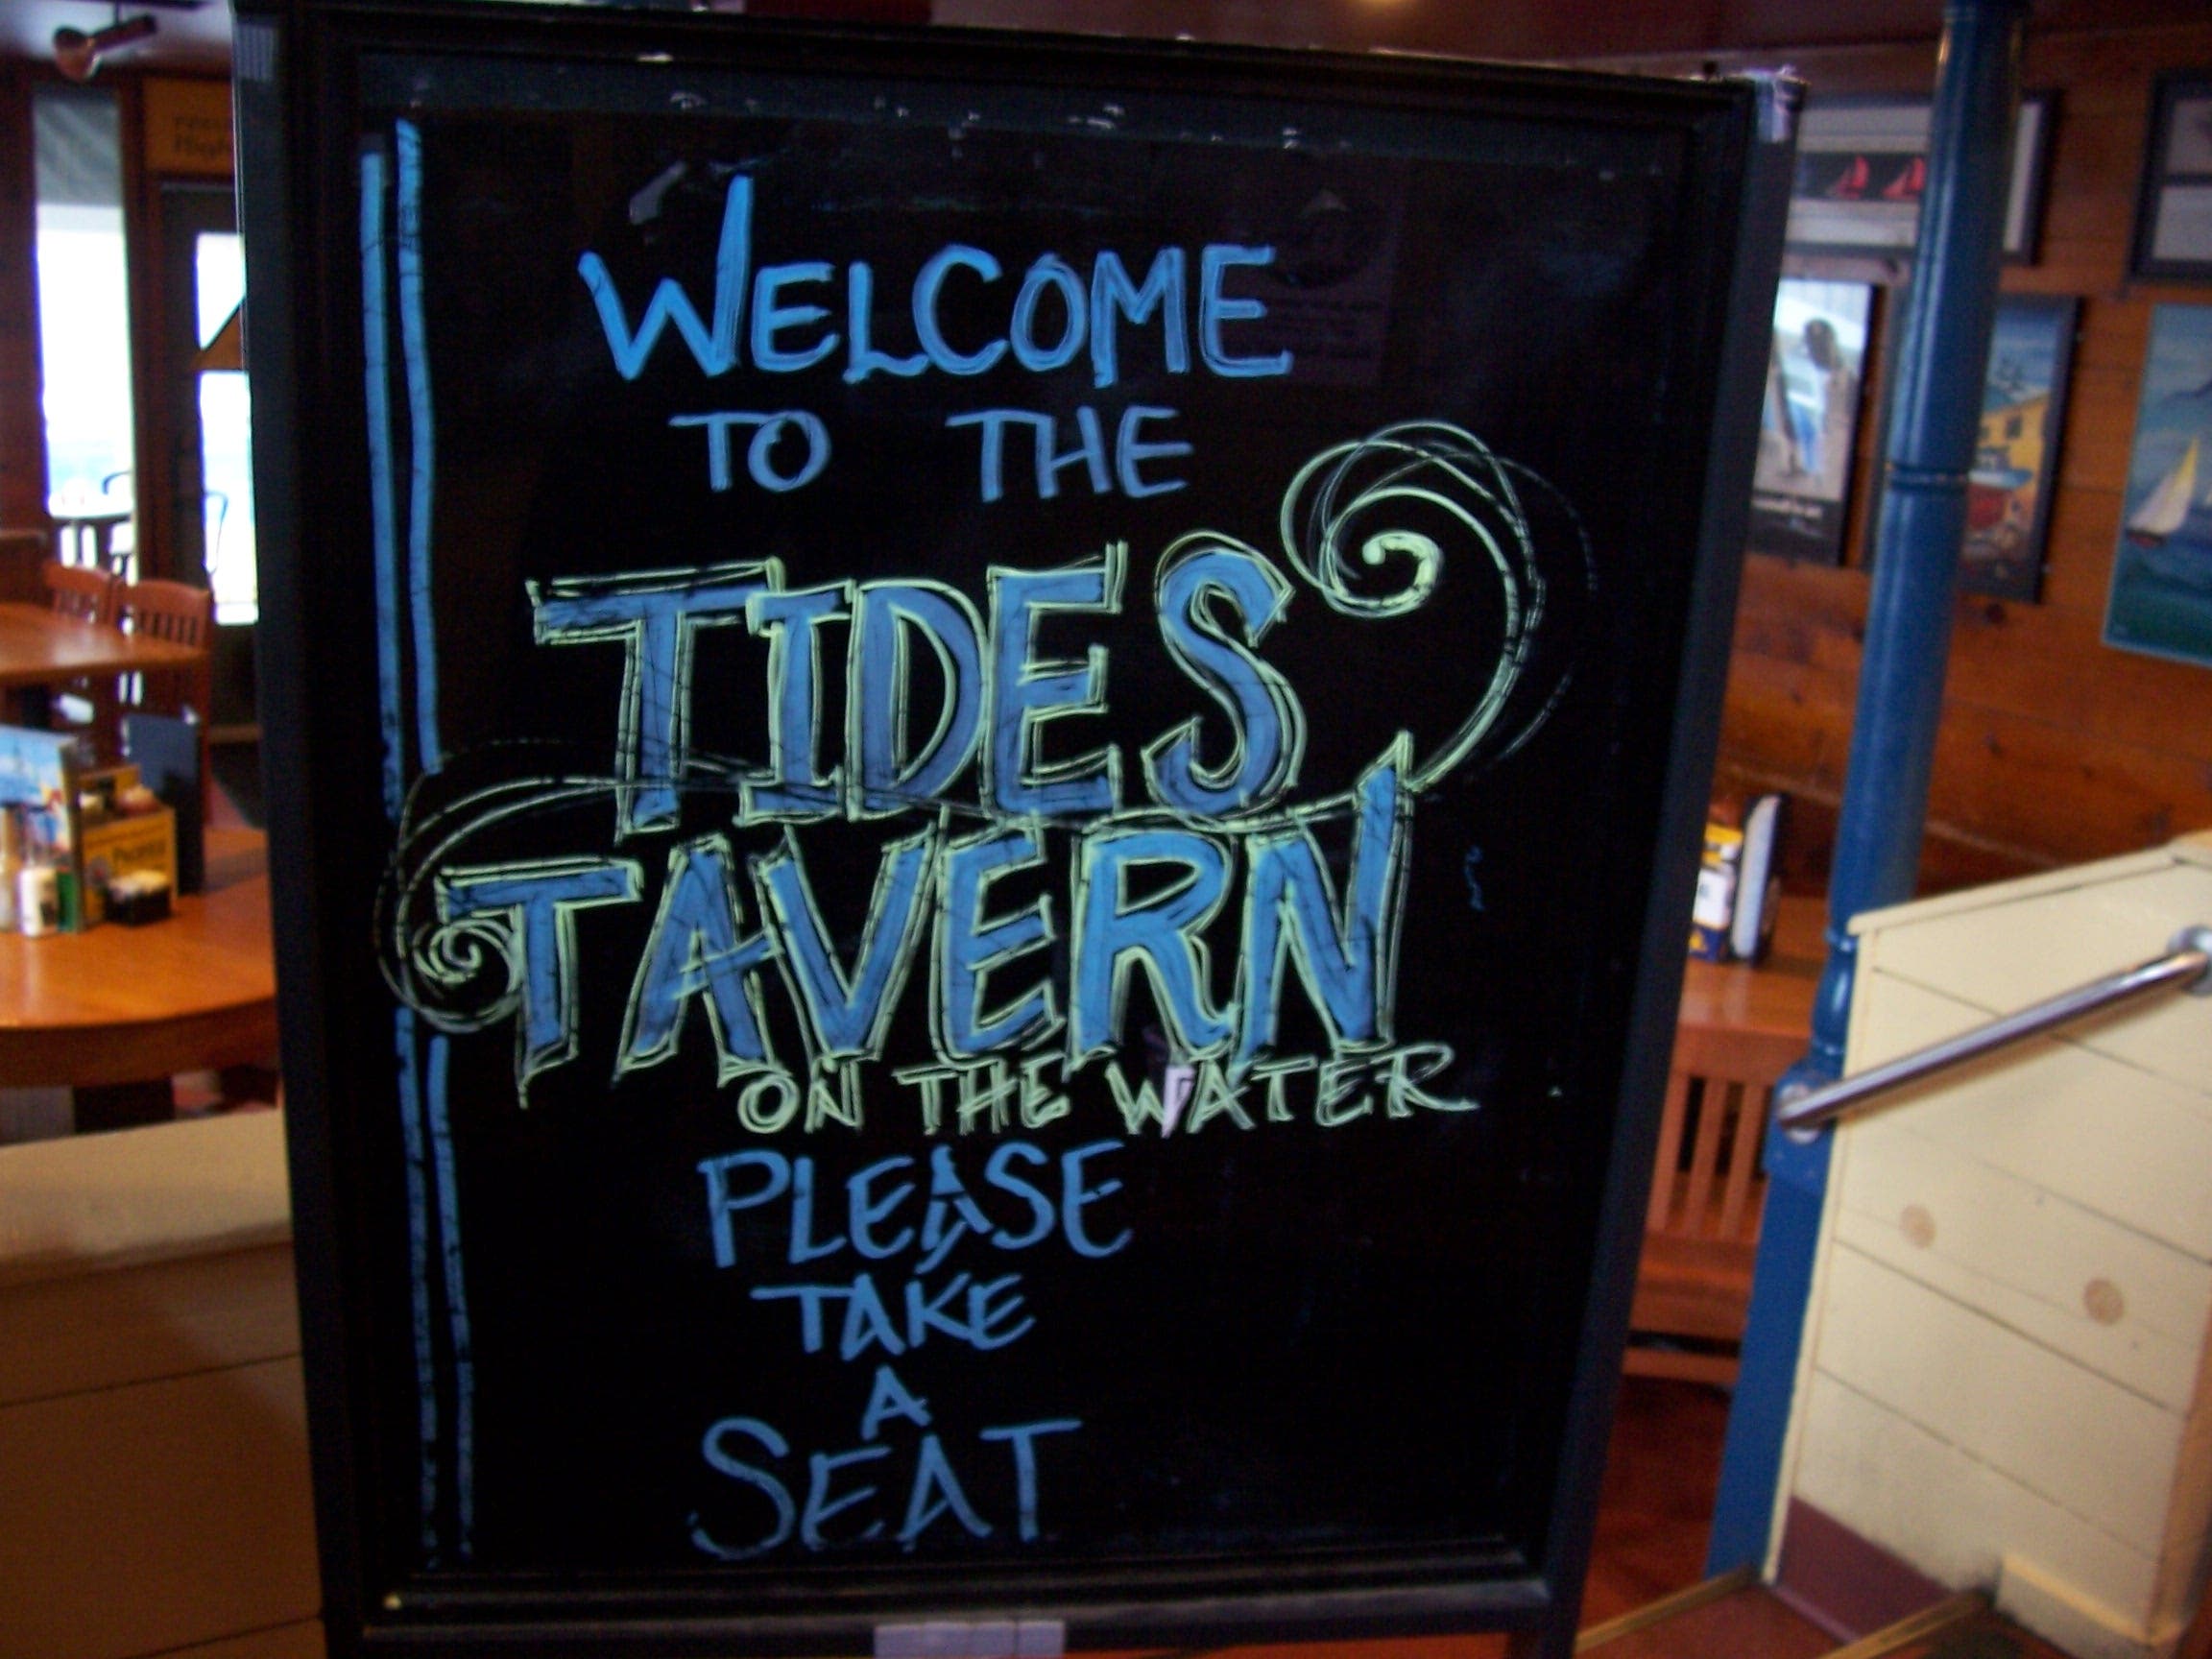 WELCOME
TO THE
TIDES
TAVERN
ON THE WATER
PLEASE
TAKE
A
SEAT